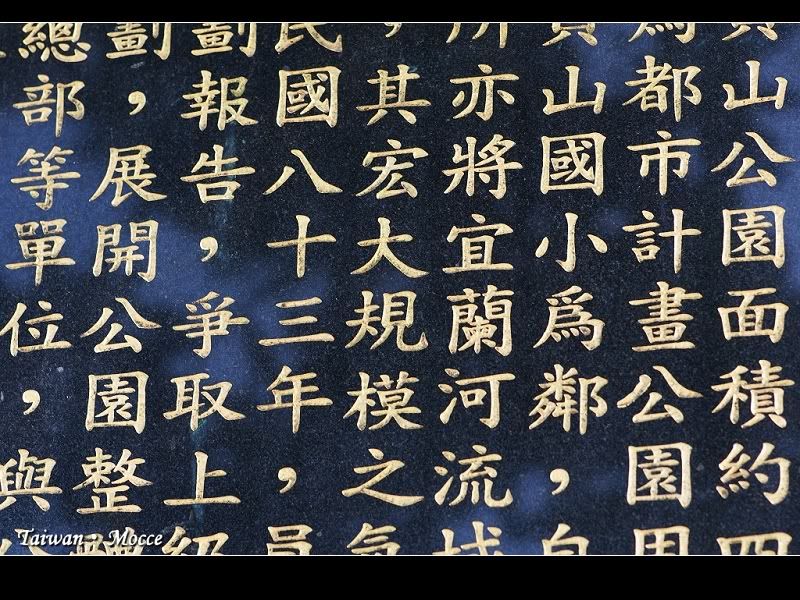 山公園面積約四
爲都市計畫公園用
員山國小爲鄰，自
所亦將宜蘭河流域
，其宏大規模之氣
民國八十三年，員
劃報告，爭取上級
劃，展開公園整體
總部等單位，與
Taiwan . Mocce